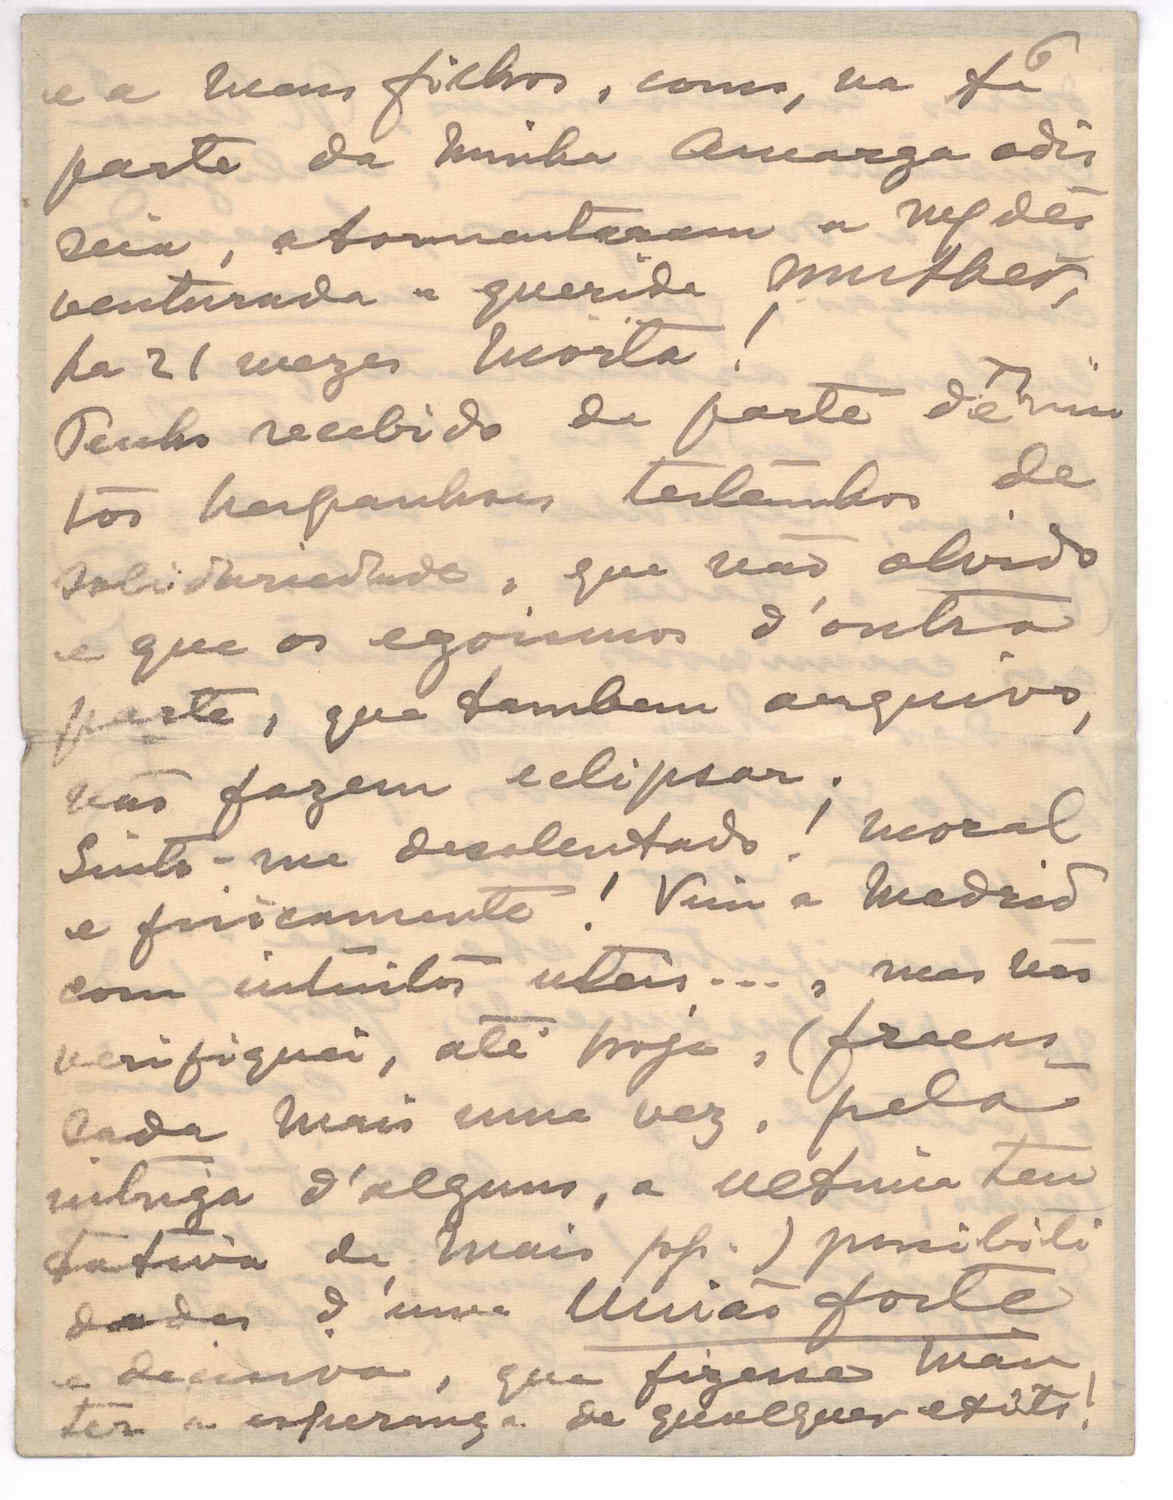 e a meus filhos, como, na 1ª
parte da minha amarga odis
seia, atormentaram a m/ des
venturada e querida mulher,
ha 21 mezes morta!
Tenho recebido da parte de m/ui
tos hespanhoes testemunhos de
solidariedade, que não olvido
e que os egoismos d'outra
parte, que tambem arquivo,
não fazem eclipsar.
Sinto-me desalentado! moral
e fisicamente! Vim a Madrid
com intuitos uteis...., mas não
verifiquei, até hoje, (fracas
sada mais uma vez, pela
intriga d'alguns, a ultima ten
tativa de mais) possibili
dades d'uma União forte
e decisiva, que fizesse man
ter a esperança de qualquer exito!